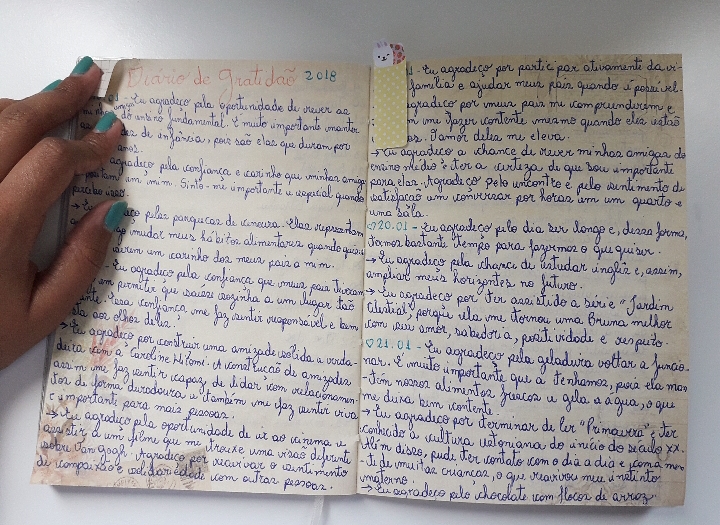 Diário de Gratidão 2018
Eu agradeço pela oportunidade de rever as
minhas amigas do ensino fundamental. É muito importante manter
as de infância, pois são elas que duram por
anos.
agradeço pela confiança e carinho que minhas amigas
depositam em mim. Sinto-me importante e especial quando
percebo isso.
→ Eu agradeço pelas panquecas de cenoura. Elas representam
mudar meus hábitos alimentares quando
serem um carinho dos meus pais a mim.
- Eu agradeço pela confiança que meus pais tiveram
em permitir que saísse sozinha a um lugar tão
Essa confiança me faz sentir responsável e bem
aos olhos deles.
→ Eu agradeço por construir uma amizade sólida e verda
deira com a Caroline Hitomi. A construção de amizades
assim me faz sentir capaz de lidar com relacionamen-
tos de forma duradoura e também me faz sentir viva
e importante para mais pessoas.
→ Eu agradeço pela oportunidade de ir ao cinema e
assistir a um filme que me trouxe uma visão diferente
sobre Van Gogh. Agradeço por reavivar o sentimento
de compaixão e solidariedade com outras pessoas.
- Eu agradeço por participar ativamente da
família e ajudar meus pais quando é possível.
agradeço por meus pais me compreenderem e
me fazer contente mesmo quando eles estão
O amor deles me eleva.
→ Eu agradeço a chance de rever minhas amigas do
ensino médio e ter a certeza de que sou importante
para elas. Agradeço pelo encontro e pelo sentimento de
satisfação em conversar por horas em um quarto e
uma sala.
♡20.01 - Eu agradeço pelo dia ser longo e, dessa forma,
termos bastante tempo para fazermos o que quiser.
→ Eu agradeço pela chance de estudar inglês e, assim,
ampliar meus horizontes no futuro.
→ Eu agradeço por ter assistido a série "Jardim
Celestial" porque ela me tornou uma Bruna melhor
com seu amor, sabedoria, positividade e respeito.
♡21.01 - Eu agradeço pela geladura voltar a funcio-
nar. É muito importante que a tenhamos, pois ela man
tém nossos alimentos frescos e gela a água, o que
me deixa bem contente.
→ Eu agradeço por terminar de ler "Primavera" e ter
conhecido a cultura estoniana do início do século XX.
Além disso, pude ter contato com o dia a dia e com a men
te de muitas crianças, o que reavivou meu instinto
materno.
→ Eu agradeço pelo chocolate com flocos de arroz